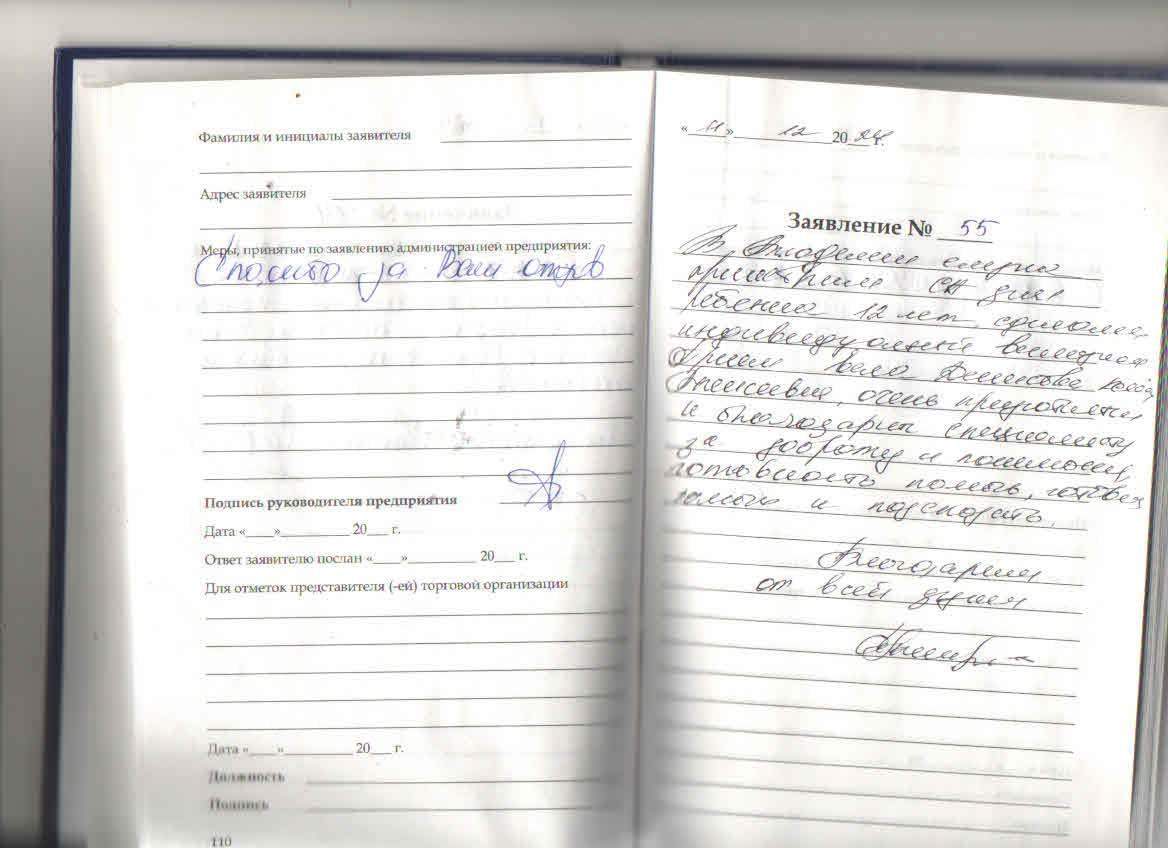 Фамилия и инициалы заявителя
Адрес заявителя
Меры, принятые по заявлению администрацией предприятия:
Спасибо за Ваш отзыв
Подпись руководителя предприятия
Дата «____»__________ 20___ г.
Ответ заявителю послан «____»__________ 20___ г.
Для отметок представителя (-ей) торговой организации
Дата «____»__________ 20___ г.
Должность
Подпись
110
« 11 » 12 20 24 г.
Заявление № 55
В
приобрели СА для
ребенка 12 лет, сделали
индивидуальный вкладыш
Прием вела
очень
и благодарны специалисту
за доброту и понимание,
готовность помочь,
помочь и подсказать.
Благодарим
от всей души